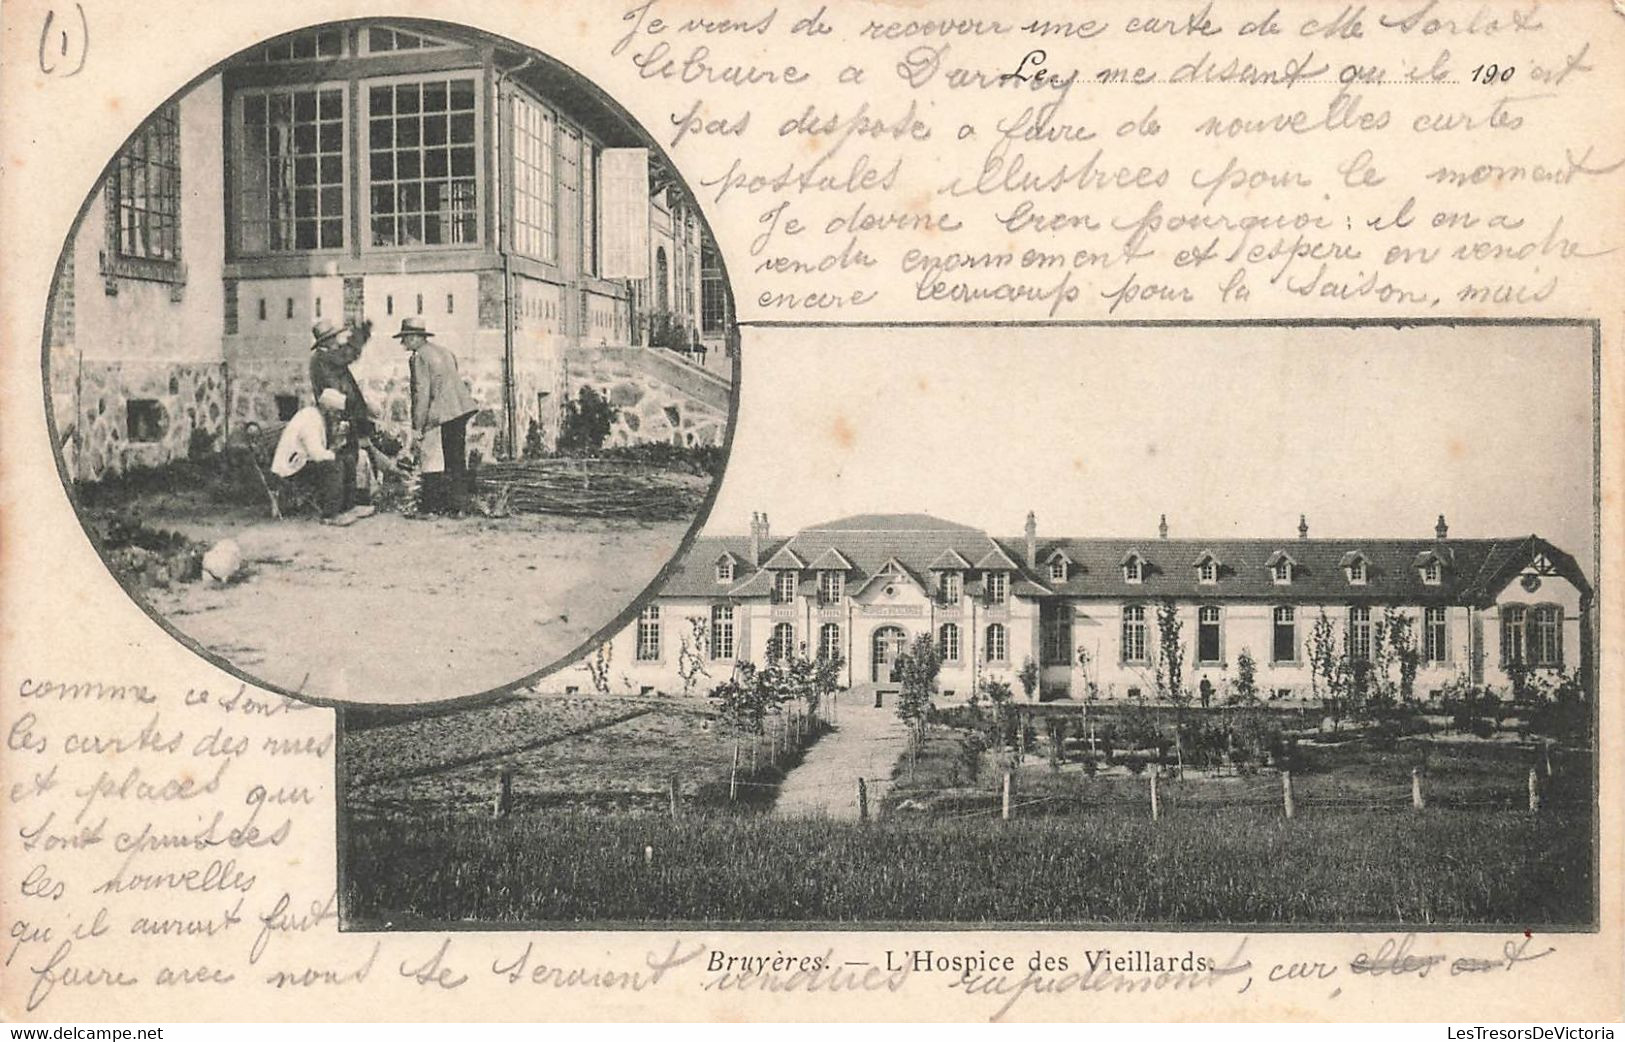 (1)
Je viens de recevoir une carte de Mr Sorlot
libraire a Darney me disant qu'il est
Le 190
pas disposé a faire de nouvelles cartes
postales illustrées pour le moment
Je devine bien pourquoi : il en a
vendu enormement et espere en vendre
encore beaucoup pour la saison, mais
comme ce sont
les cartes des rues
et places qui
sont epuisées
les nouvelles
qu'il aurait fait
faire avec nous se seraient vendues rapidement, car elles ont
Bruyères. — L'Hospice des Vieillards.
LesTresorsDeVictoria